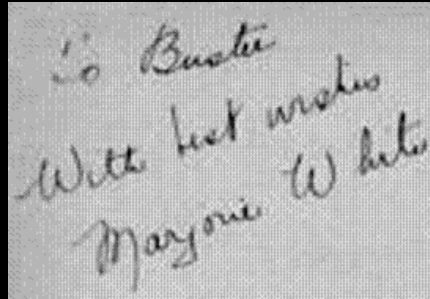 To Buster
With best wishes
Marjorie White